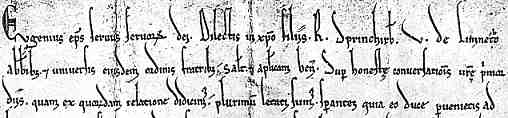 Eugenius eps seruus seruorum dei. Dilectis in xpo filiis. R. Dprinchirb. V. de Lunecto
Abbibz. & uniuersis eiusdem ordinis fratribz. Salt & aplicam ben. Sup honestate conuersationis ure prima
dus. quam ex quorundam relatione didicim. plurimum letati sum. sperantes quia eo duce puenietis ad